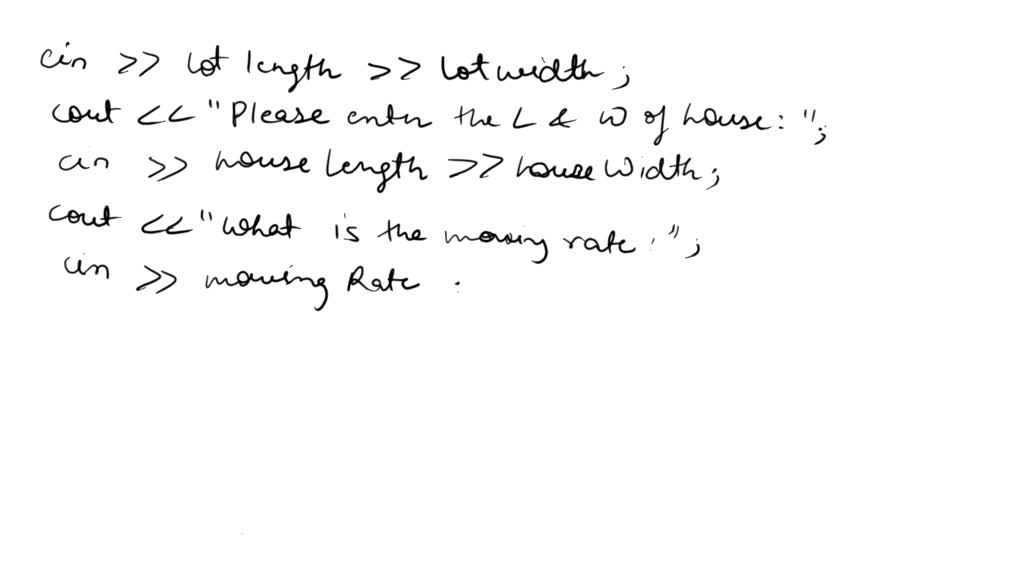 cin >> lot length >> lotwidth ;
cout << "Please enter the L & W of house: " ;
cin >> house Length >> house Width ;
cout << "What is the mowing rate : " ;
cin >> mowing Rate .